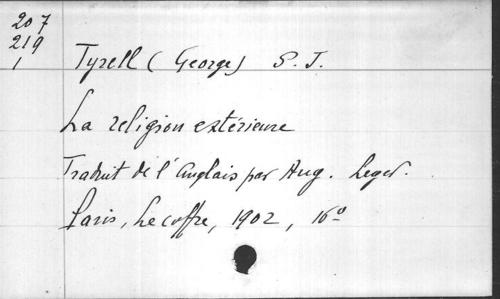 207
219
1
Tyrell (George) S. J.
La religion extérieure
Traduit de l'Anglais par Aug. Leger.
Paris, Lecoffre, 1902, 16º